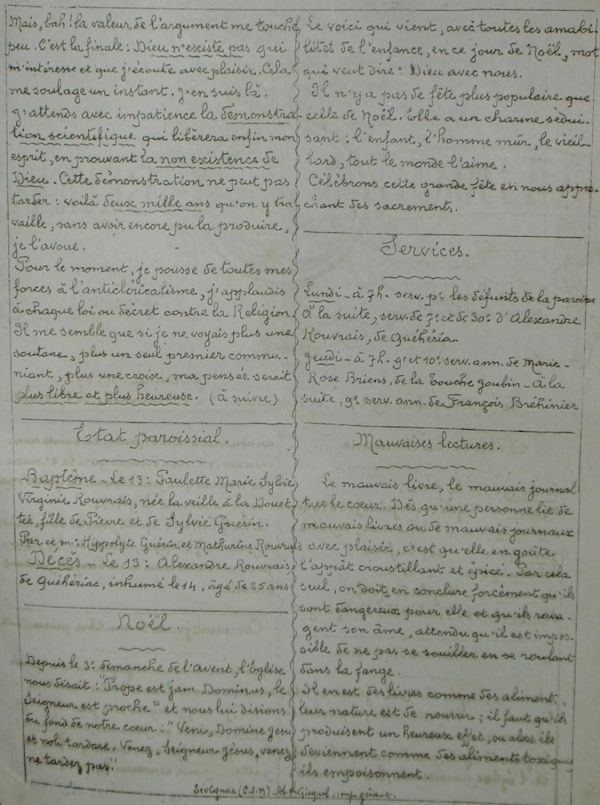 Mais, bah! la valeur de l'argument me touche
peu. C'est la finale: Dieu n'existe pas qui
m'intéresse et que j'écoute avec plaisir. Cela
me soulage un instant. J'en suis là.
J'attends avec impatience la démonstra-
tion scientifique qui libèrera enfin mon
esprit, en prouvant la non existence de
Dieu. Cette démonstration ne peut pas
tarder: voilà deux mille ans qu'on y tra
vaille, sans avoir encore pu la produire,
je l'avoue.
Pour le moment, je pousse de toutes mes
forces à l'anticléricalisme, j'applaudis
à chaque loi ou décret contre la Religion
Il me semble que si je ne voyais plus une
soutane, plus un seul premier commu-
niant, plus une croix, ma pensée serait
plus libre et plus heureuse. (à suivre)
Etat paroissial.
Baptême - Le 13: Paulette Marie Sylvie
Virginie Rouvrais, née la veille à la Douet
tée, fille de Pierre et de Sylvie Guérin.
Par et m: Hippolyte Guérin et Mathurine Rouvrais
Décès - Le 13: Alexandre Rouvrais
de Quéhériac, inhumé le 14, âgé de 25 ans
Noël.
Depuis le 3e dimanche de l'Avent, l'Eglise
nous disait: "Prope est jam Dominus, le
Seigneur est proche" et nous lui disions
du fond de notre cœur: "Veni, Domine Jesu
et noli tardare. Venez, Seigneur Jésus, venez
ne tardez pas".
Le voici qui vient, avec toutes les amabi
lités de l'enfance, en ce jour de Noël, mot
qui veut dire: Dieu avec nous.
Il n'y a pas de fête plus populaire que
celle de Noël. Elle a un charme sédui-
sant: l'enfant, l'homme mûr, le vieil-
lard, tout le monde l'aime.
Célébrons cette grande fête en nous appro-
chant des sacrements.
Services.
Lundi - à 7h. serv. pr les défunts de la paroisse
à la suite, serv. de 7e et de 30e d'Alexandre
Rouvrais, de Quéhéria-
Jeudi - à 7h. 9e et 10e serv. ann. de Marie-
Rose Briens, de la Touche goubin - à la
suite, 9e serv. ann. de François Bréhinier
Mauvaises lectures.
Le mauvais livre, le mauvais journal
tue le cœur. Dès qu'une personne lit de
mauvais livres ou de mauvais journaux
avec plaisir, c'est qu'elle en goûte
l'appât croustillant et épicé. Par cela
seul, on doit en conclure forcément qu'ils
sont dangereux pour elle et qu'ils rava-
gent son âme, attendu qu'il est impos-
sible de ne pas se souiller en se roulant
dans la fange.
Il en est des livres comme des aliments;
leur nature est de nourrir; il faut qu'ils
produisent un heureux effet, ou alors ils
deviennent comme des aliments toxiques
ils empoisonnent.
Sévignac (C.d.N)